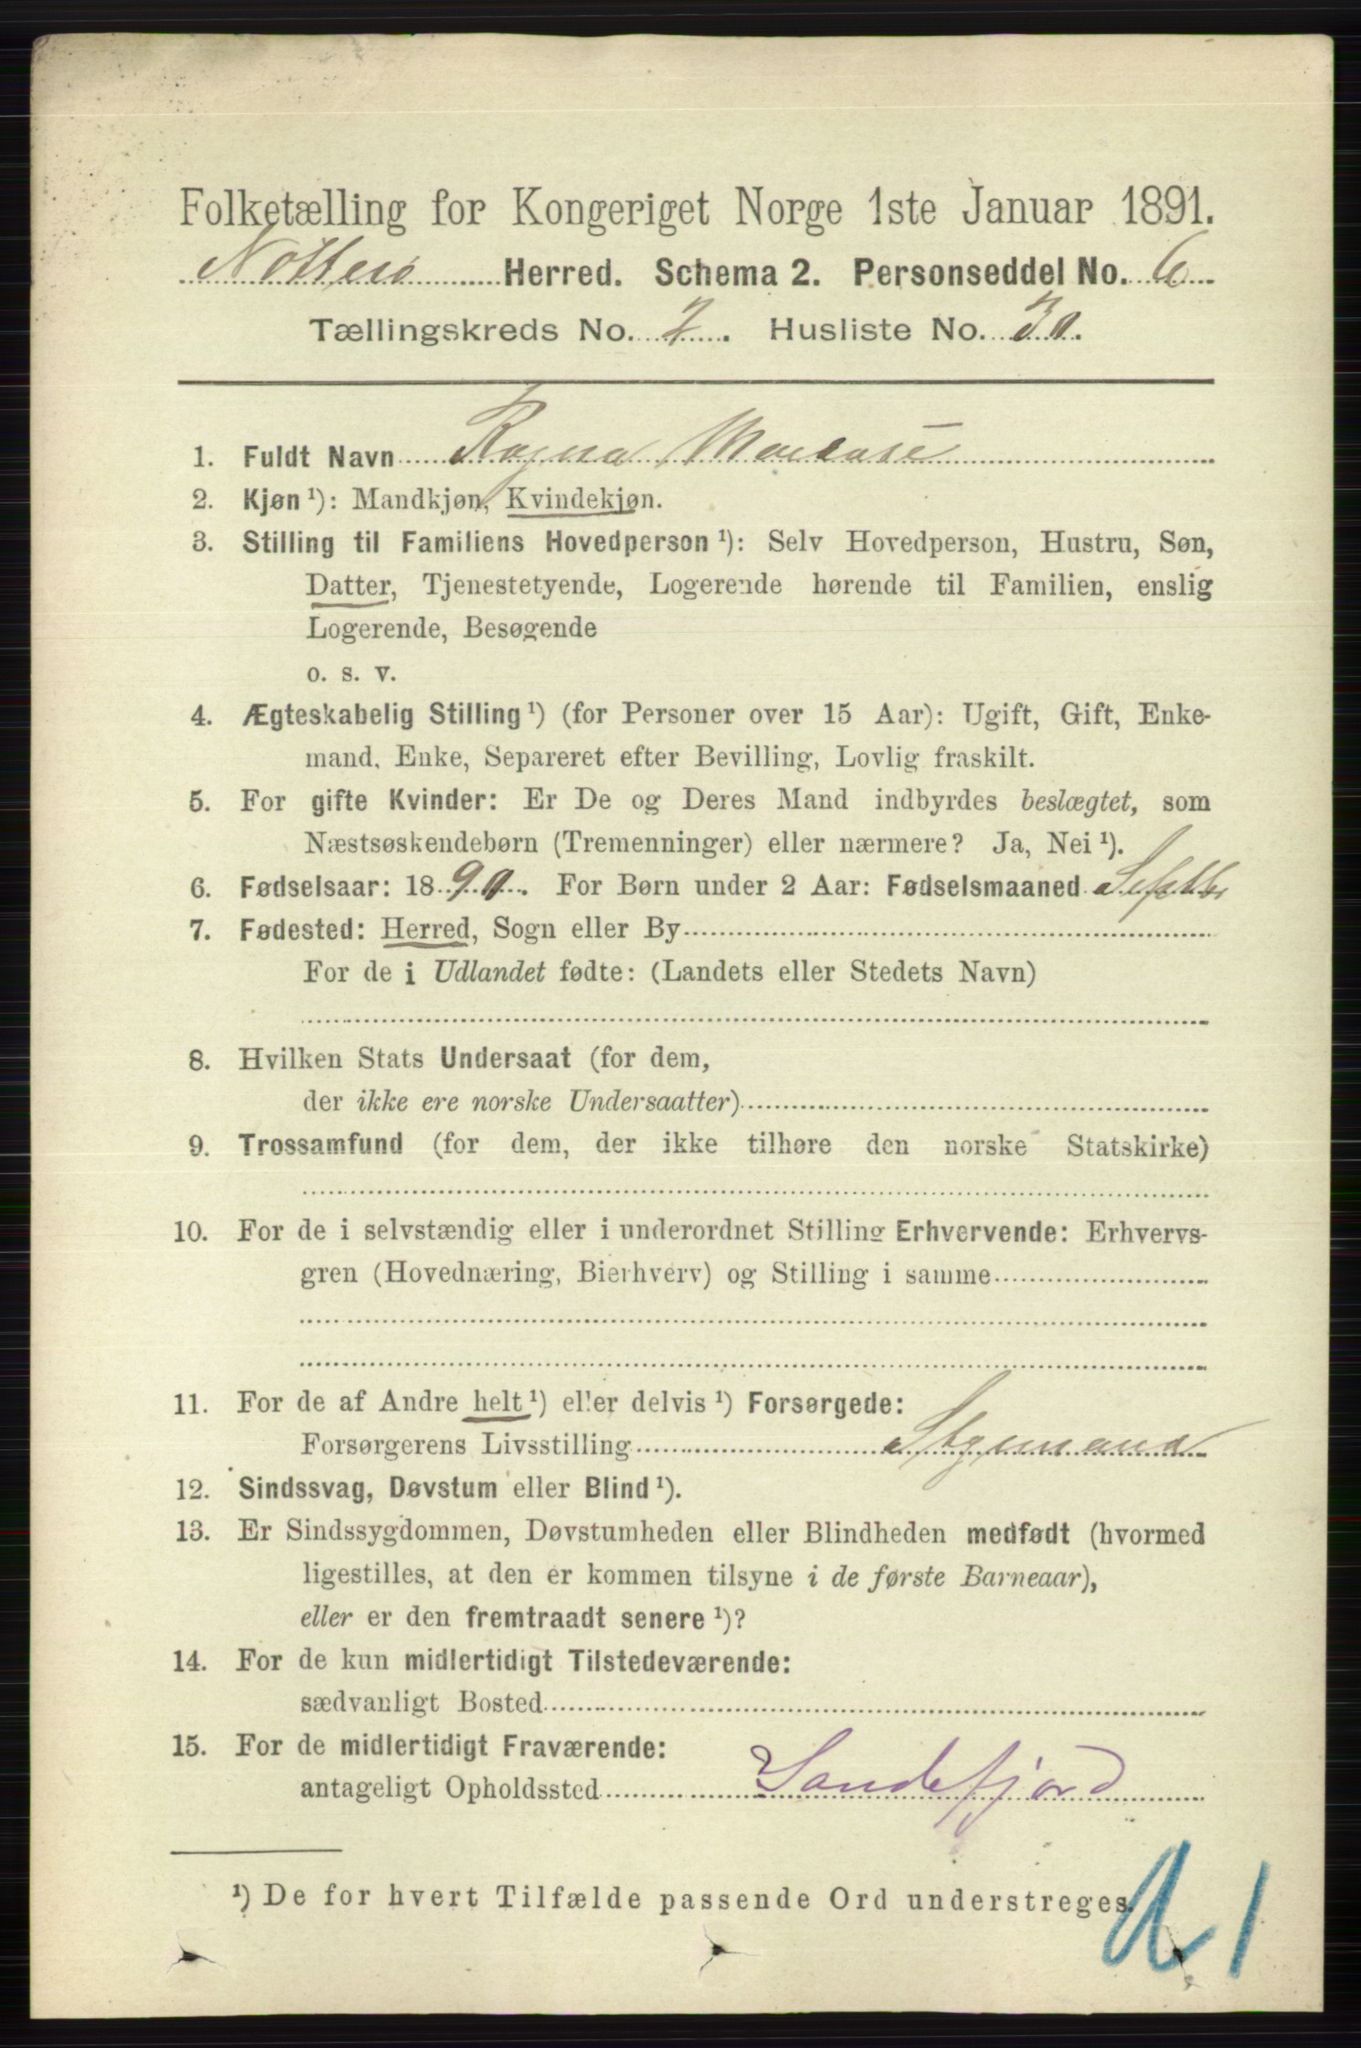 Folketælling for Kongeriget Norge 1ste Januar 1891.
Nøtterø Herred. Schema 2. Personseddel No. 6
Tællingskreds No. 2. Husliste No. 30.
1. Fuldt Navn Ragna
2. Kjøn ¹): Mandkjøn, Kvindekjøn.
3. Stilling til Familiens Hovedperson ¹): Selv Hovedperson, Hustru, Søn,
Datter, Tjenestetyende, Logerende hørende til Familien, enslig
Logerende, Besøgende
o. s. v.
4. Ægteskabelig Stilling ¹) (for Personer over 15 Aar): Ugift, Gift, Enke-
mand, Enke, Separeret efter Bevilling, Lovlig fraskilt.
5. For gifte Kvinder: Er De og Deres Mand indbyrdes beslægtet, som
Næstsøskendebørn (Tremenninger) eller nærmere? Ja, Nei ¹).
6. Fødselsaar: 1890. For Børn under 2 Aar: Fødselsmaaned Septbr
7. Fødested: Herred, Sogn eller By
For de i Udlandet fødte: (Landets eller Stedets Navn)
8. Hvilken Stats Undersaat (for dem,
der ikke ere norske Undersaatter)
9. Trossamfund (for dem, der ikke tilhøre den norske Statskirke)
10. For de i selvstændig eller i underordnet Stilling Erhvervende: Erhvervs-
gren (Hovednæring, Bierhverv) og Stilling i samme
11. For de af Andre helt ¹) eller delvis ¹) Forsørgede:
Forsørgerens Livsstilling Styrmand
12. Sindssvag, Døvstum eller Blind ¹).
13. Er Sindssygdommen, Døvstumheden eller Blindheden medfødt (hvormed
ligestilles, at den er kommen tilsyne i de første Barneaar),
eller er den fremtraadt senere ¹)?
14. For de kun midlertidigt Tilstedeværende:
sædvanligt Bosted
15. For de midlertidigt Fraværende:
antageligt Opholdssted Sandefjord
¹) De for hvert Tilfælde passende Ord understreges.